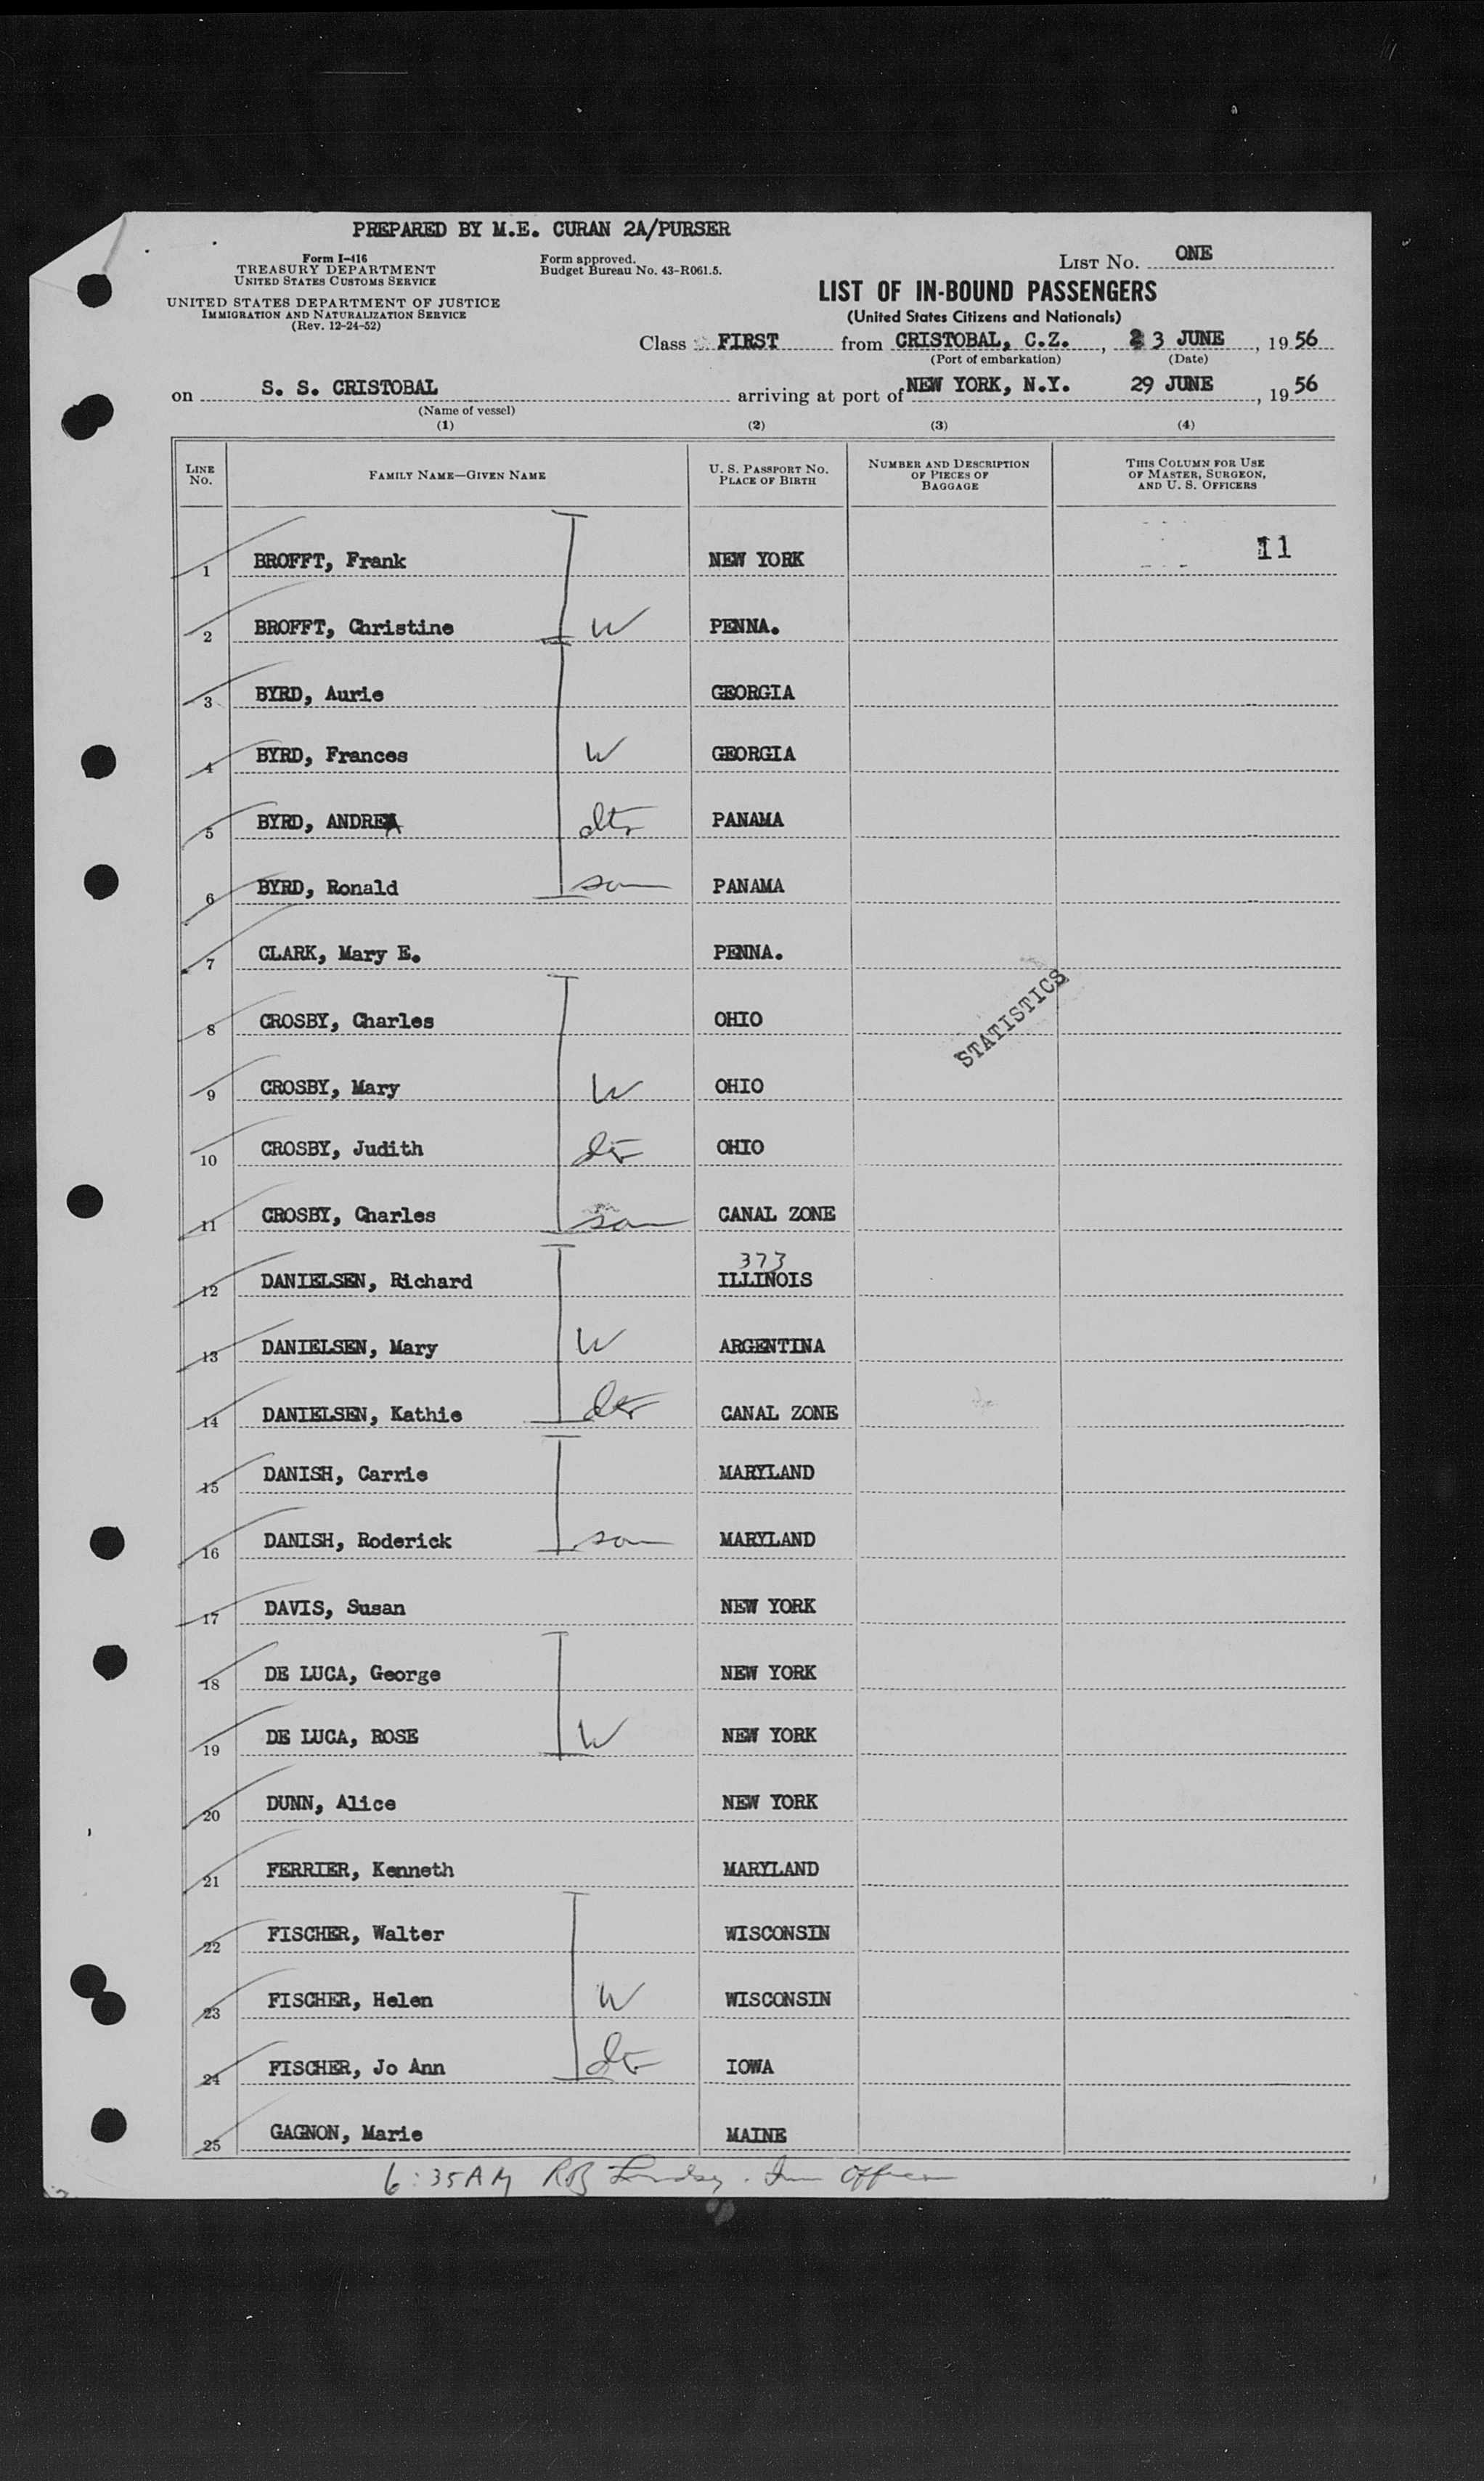 PREPARED BY M.E. CURAN 2A/PURSER
Form I-416
TREASURY DEPARTMENT
UNITED STATES CUSTOMS SERVICE
UNITED STATES DEPARTMENT OF JUSTICE
IMMIGRATION AND NATURALIZATION SERVICE
(Rev. 12-24-52)
Form approved.
Budget Bureau No. 43-R061.5.
LIST NO. ONE
LIST OF IN-BOUND PASSENGERS
(United States Citizens and Nationals)
Class FIRST from CRISTOBAL, C.Z., 23 JUNE, 1956
(Port of embarkation) (Date)
on S. S. CRISTOBAL arriving at port of NEW YORK, N.Y. 29 JUNE, 1956
(Name of vessel)
(1) (2) (3) (4)
LINE NO. FAMILY NAME—GIVEN NAME U. S. PASSPORT NO. PLACE OF BIRTH NUMBER AND DESCRIPTION OF PIECES OF BAGGAGE THIS COLUMN FOR USE OF MASTER, SURGEON, AND U. S. OFFICERS
1 BROFFT, Frank NEW YORK 11
2 BROFFT, Christine W PENNA.
3 BYRD, Aurie GEORGIA
4 BYRD, Frances W GEORGIA
5 BYRD, ANDREA dtr PANAMA
6 BYRD, Ronald son PANAMA
7 CLARK, Mary E. PENNA.
STATISTICS
8 CROSBY, Charles OHIO
9 CROSBY, Mary W OHIO
10 CROSBY, Judith dtr OHIO
11 CROSBY, Charles son CANAL ZONE
373
12 DANIELSEN, Richard ILLINOIS
13 DANIELSEN, Mary W ARGENTINA
14 DANIELSEN, Kathie dtr CANAL ZONE
15 DANISH, Carrie MARYLAND
16 DANISH, Roderick son MARYLAND
17 DAVIS, Susan NEW YORK
18 DE LUCA, George NEW YORK
19 DE LUCA, ROSE W NEW YORK
20 DUNN, Alice NEW YORK
21 FERRIER, Kenneth MARYLAND
22 FISCHER, Walter WISCONSIN
23 FISCHER, Helen W WISCONSIN
24 FISCHER, Jo Ann dtr IOWA
25 GAGNON, Marie MAINE
6:35 AM Imm Officer